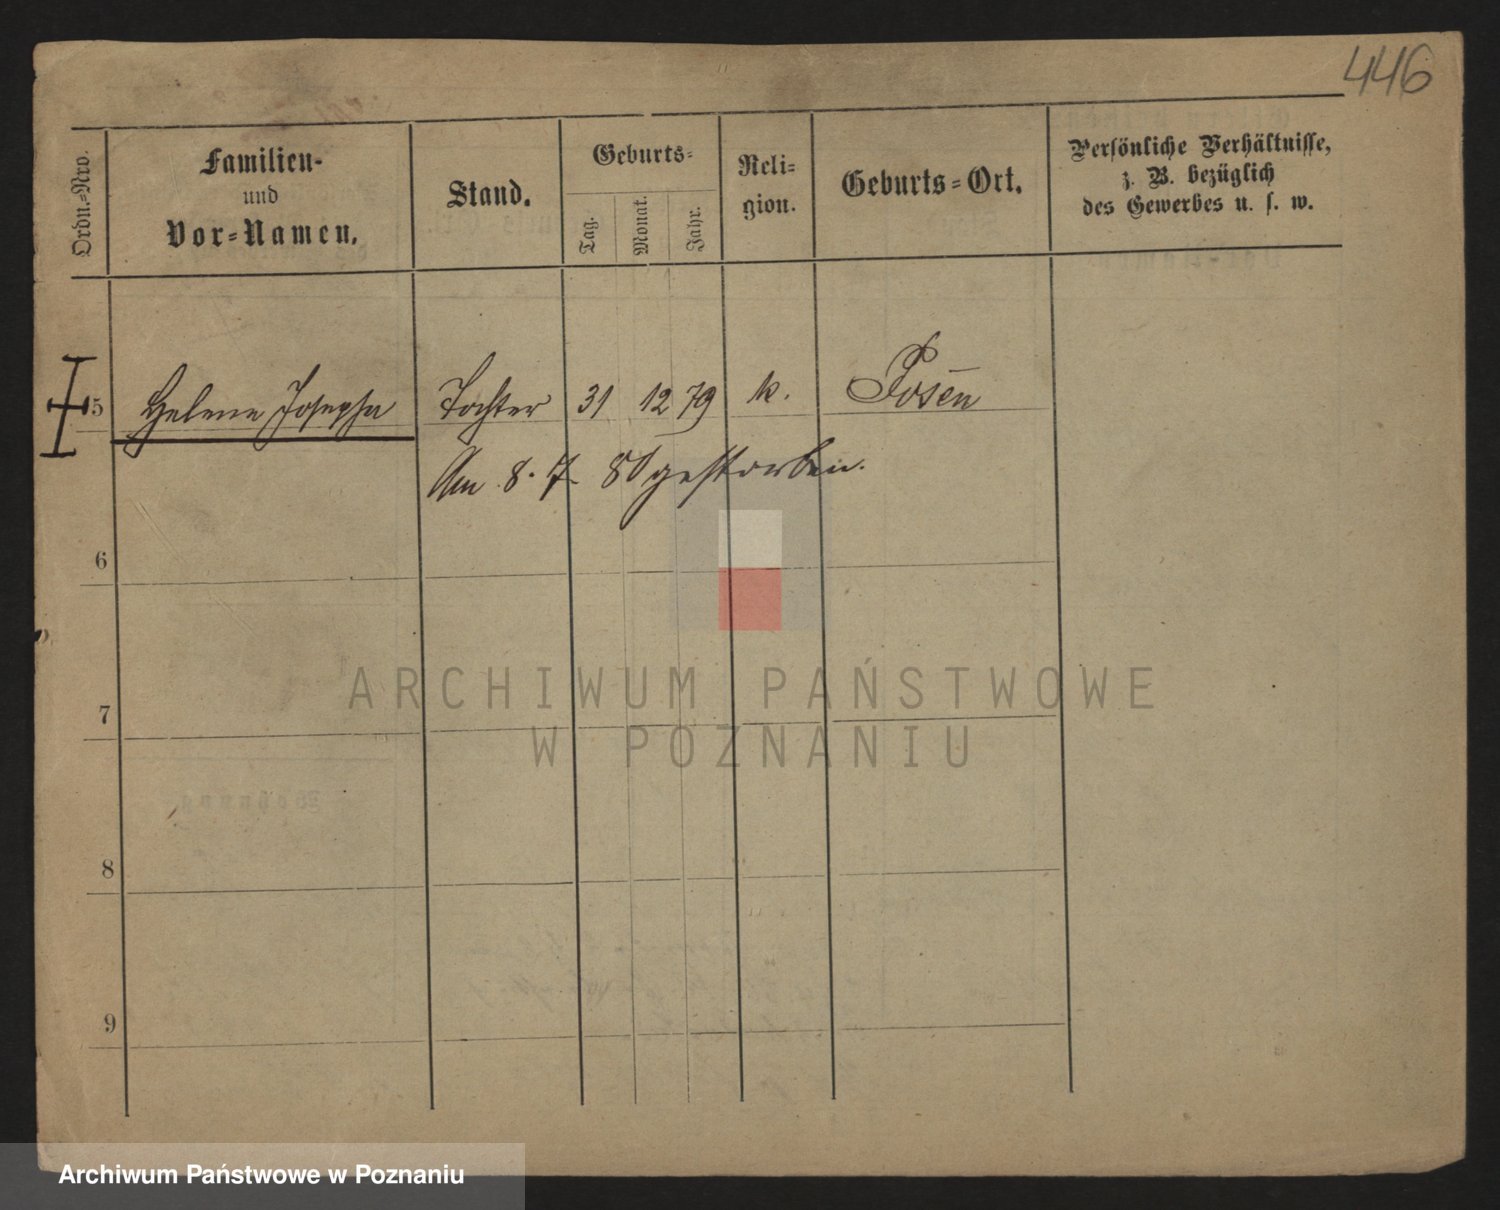 446
Ordn.-Nro.
Familien-
und
Vor-Namen.
Stand.
Geburts-
Tag.
Monat.
Jahr.
Reli-
gion.
Geburts-Ort.
Persönliche Verhältnisse,
z. B. bezüglich
des Gewerbes u. s. w.
5 Helena Josepha Tochter 31 12 79 k. Posen
Am 8. 7. 80 gestorben.
6
7
8
9
ARCHIWUM PAŃSTWOWE
W POZNANIU
Archiwum Państwowe w Poznaniu